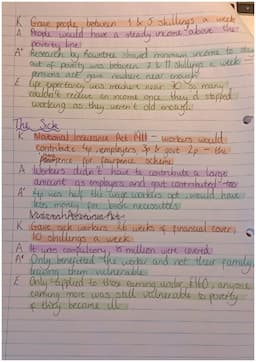 K Gave people between 1 & 5 shillings a week
A People would have a steady income above the
poverty line
A* Research by Rowntree showed minimum income to stay
out of poverty was between 7 & 11 shillings a week
pensions act gave nowhere near enough
E Life expectancy was nowhere near 70 so many
couldn't receive an income once they'd stopped
working as they weren't old enough.
The Sick
K National Insurance Act 1911 - workers would
contribute 4p employers 3p & gov't 2p - the
for fourpence scheme
A Workers didn't have to contribute a large
amount as employers and gov't contributed too
A* 4p was half the wages workers got, would have
less money for basic necessities
K Gave sick workers 26 weeks of financial cover,
10 shillings a week
A It was compulsory, 15 million were covered
A* Only benefitted the worker and not their family,
leaving them vulnerable
E Only applied to those earning under £160, anyone
earning more was still vulnerable to poverty
if they became ill